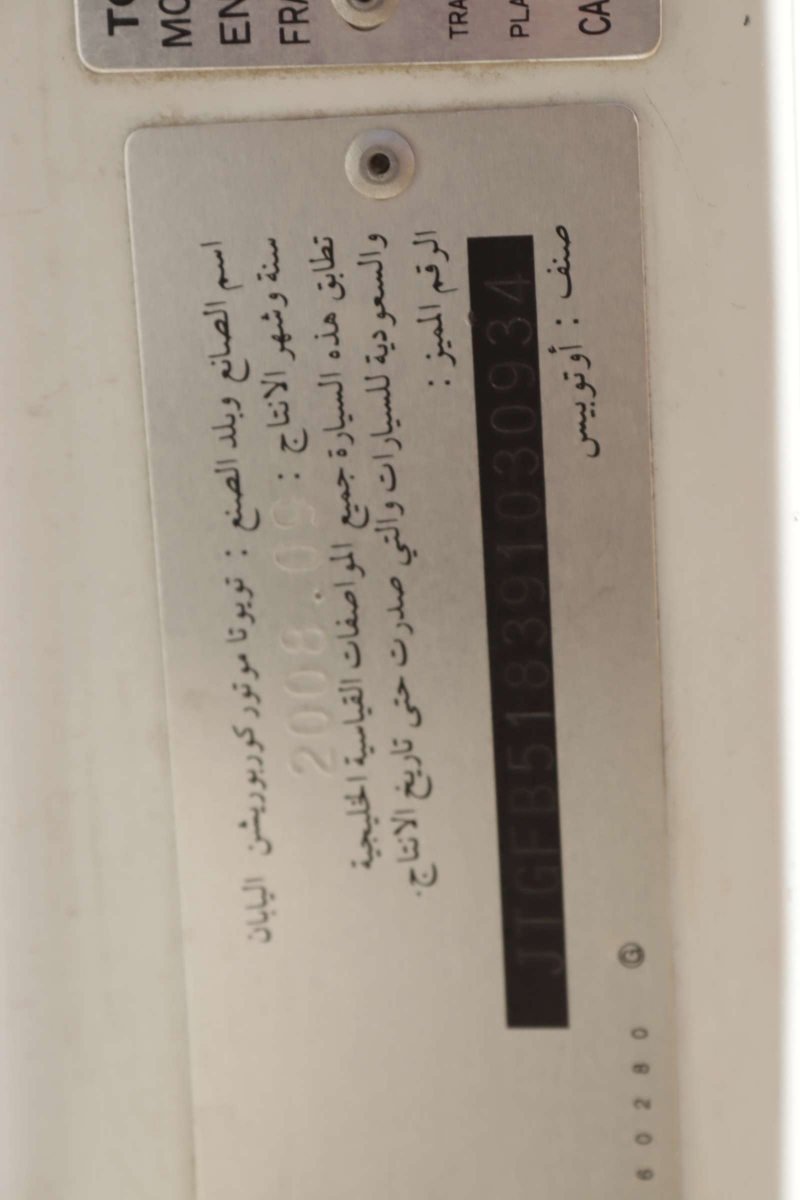 TO
MO
EN
FRA
TRA
PLA
CA
اسم الصانع وبلد الصنع : تويوتا موتور كوربوريشن اليابان
سنة وشهر الانتاج : 2008.09
تطابق هذه السيارة جميع المواصفات القياسية الخليجية
والسعودية للسيارات والتي صدرت حتى تاريخ الانتاج.
الرقم المميز :
JTGFB518391030934
صنف : أوتوبيس
60280 G